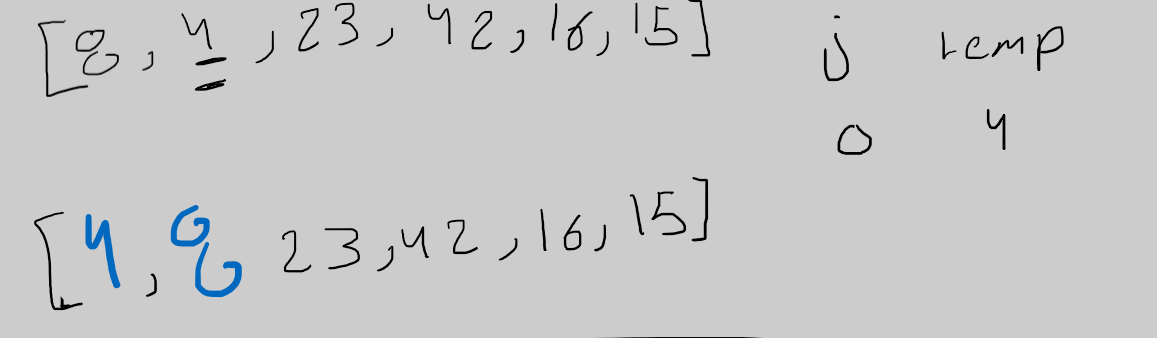 [8, 4, 23, 42, 16, 15] j temp
0 4
[4, 8 23, 42, 16, 15]